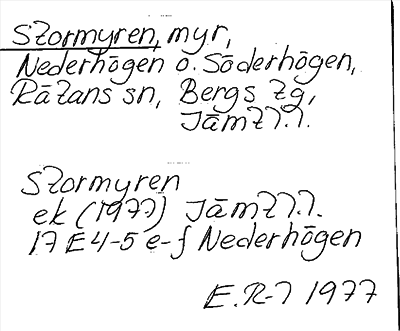 Stormyren, myr,
Nederhögen o. Söderhögen,
Rätans sn, Bergs tg,
Jämtl.l.
Stormyren
ek (1977) Jämtl.l.
17 E 4-5 e-f Nederhögen
E.R-l 1977